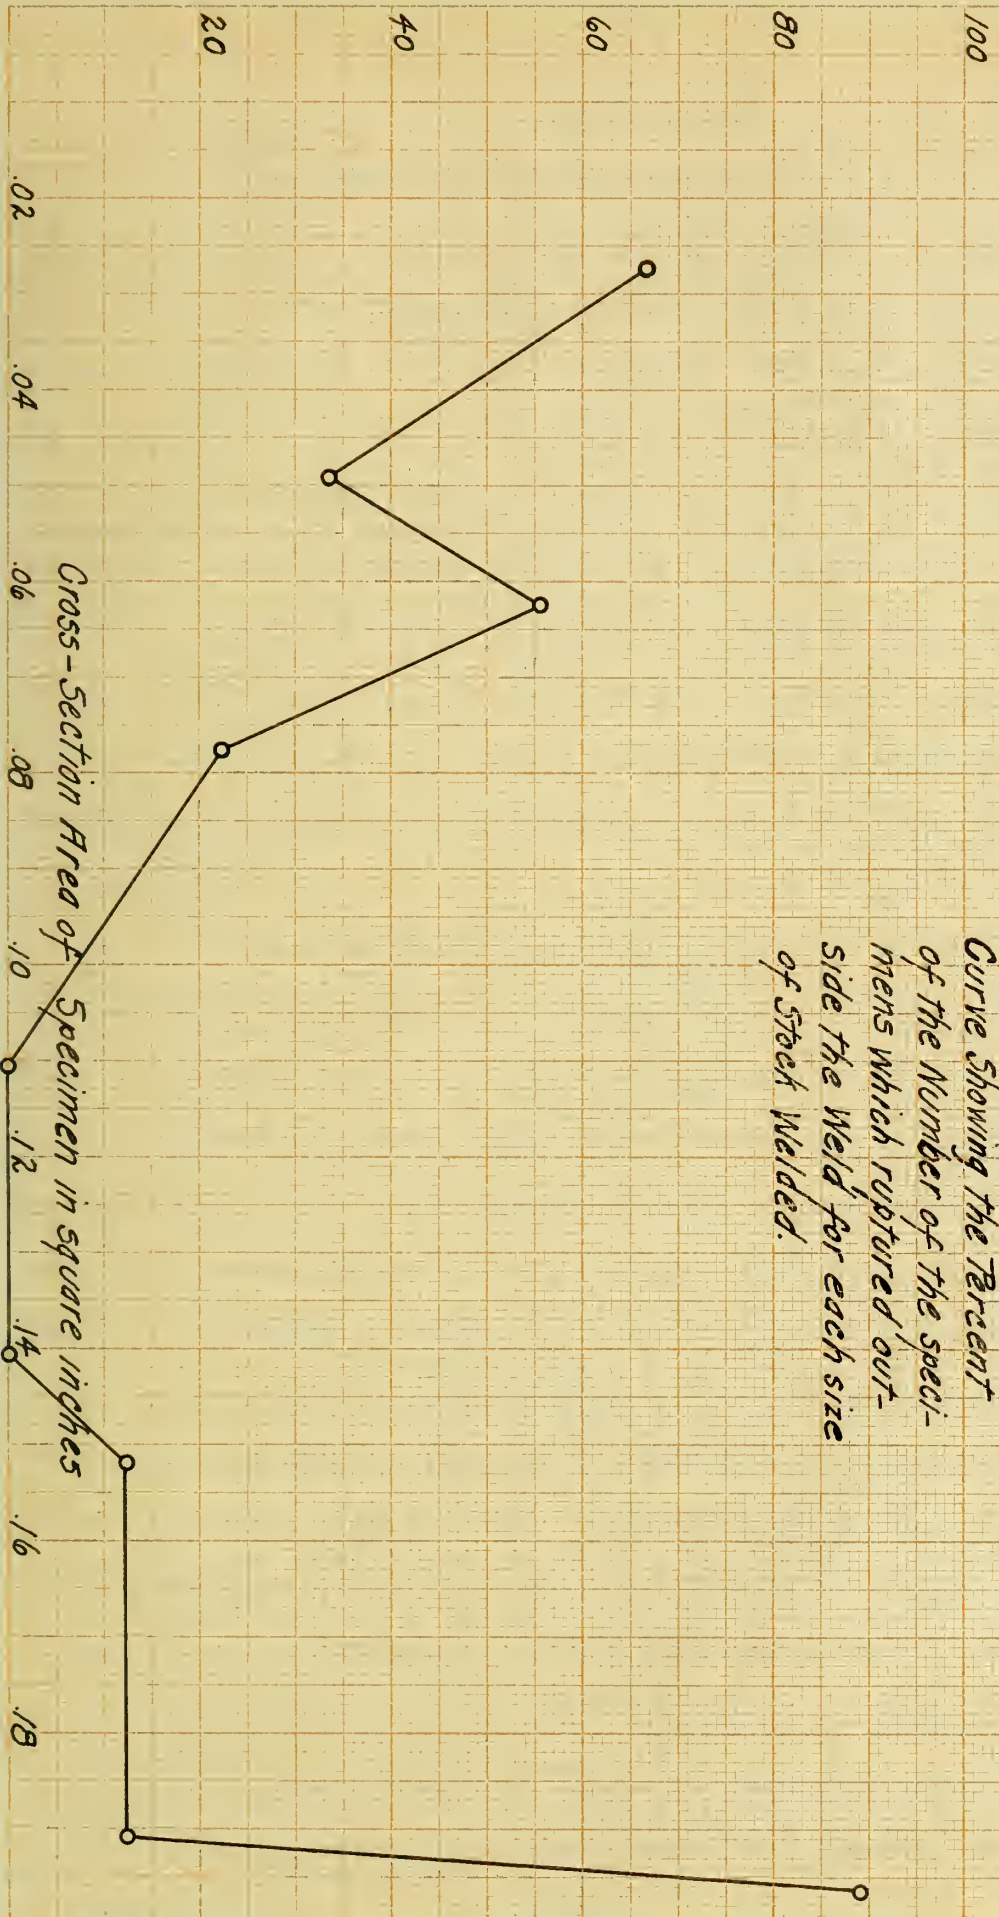 100
80
60
40
20
Curve Showing the Percent
of the Number of the speci-
mens which ruptured out-
side the Weld for each size
of Stock Welded.
.02
.04
.06
.08
.10
.12
.14
.16
.18
Cross-Section Area of Specimen in square inches